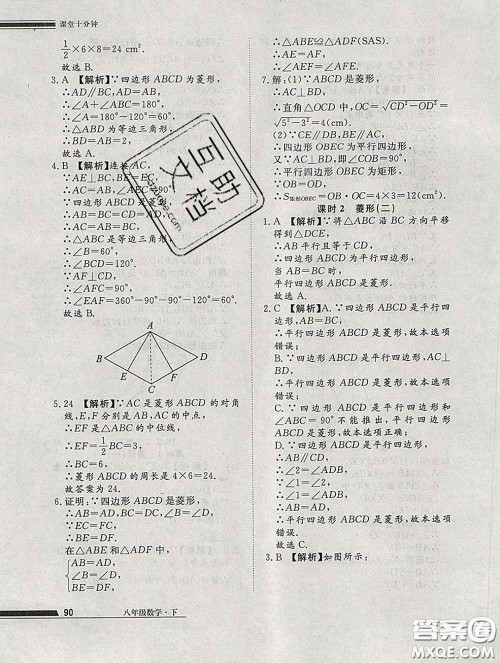 课堂十分钟
1/2×6×8=24 cm².
故选 B.
3. A 【解析】∵四边形 ABCD 为菱形,
∴AD∥BC,AD=AB,
∴∠A+∠ABC=180°,
∴∠A=180°-120°=60°,
∴△ABD 为等边三角形,
∴BD=AB=2.
故选 A.
4. B 【解析】连接 AC,
∵AE⊥BC,BE=EC,
∴AB=AC,
∵四边形 ABCD 是菱形,
∴AB=BC,
∴AB=BC=AC,
∴△ABC 是等边三角形,
∴∠B=60°,
∵AF⊥CD,
∴∠AFC=90°,
∴∠EAF=360°-90°-90°-120°=60°,
故选 B.
A
B
D
E
F
C
5. 24 【解析】∵AC 是菱形 ABCD 的对角
线,E,F 分别是 AB,AC 的中点,
∴EF 是△ABC 的中位线,
∴EF=1/2BC=3,
∴BC=6,
∴菱形 ABCD 的周长是 4×6=24.
故答案为 24.
6. 证明:∵四边形 ABCD 是菱形,
∴AB=AD,
∠B=∠D.
在△ABE 和△ADF 中,
AB=AD,
∠B=∠D,
BE=DF,
∴△ABE≌△ADF(SAS).
∴AE=AF,
∴∠AEF=∠AFE.
7. 解:(1)∵ABCD 是菱形,
∴AC⊥BD,
∴直角△OCD 中,OC=√CD²-OD²=
√5²-3²=4(cm).
(2)∵CE∥DB,BE∥AC,
∴四边形 OBEC 为平行四边形,
又∵AC⊥BD,即∠COB=90°,
∴平行四边形 OBEC 为矩形,
∵OB=OD,
∴S矩形OBEC=OB·OC=4×3=12(cm²).
课时 2 菱形(二)
1. A 【解析】∵将△ABC 沿 BC 方向平移
得到△DCE,
∴AB 平行且等于 CD,
∴四边形 ABCD 为平行四边形,
当 AC⊥BD 时,
平行四边形 ACED 是菱形.
故选 A.
2. C 【解析】A. ∵四边形 ABCD 是平行四
边形,∴平行四边形 ABCD 是菱形,故本选项
错误;
B. ∵四边形 ABCD 是平行四边形,AC⊥
BD,
∴平行四边形 ABCD 是菱形,故本选项
错误;
C. ∵四边形 ABCD 是平行四边形和
∠ABC=90°不能推出,平行四边形
ABCD 是菱形,故本选项正确;
D. ∵四边形 ABCD 是平行四边形,
∴AB∥CD,
∴∠2=∠ADB,
∵∠1=∠2,
∴∠1=∠ADB,
∴AB=AD,
∴平行四边形 ABCD 是菱形,故本选项
错误;
故选 C.
3. B 【解析】如图所示:
互助
文档
90
八年级数学·下
答案圈
MXQE.COM